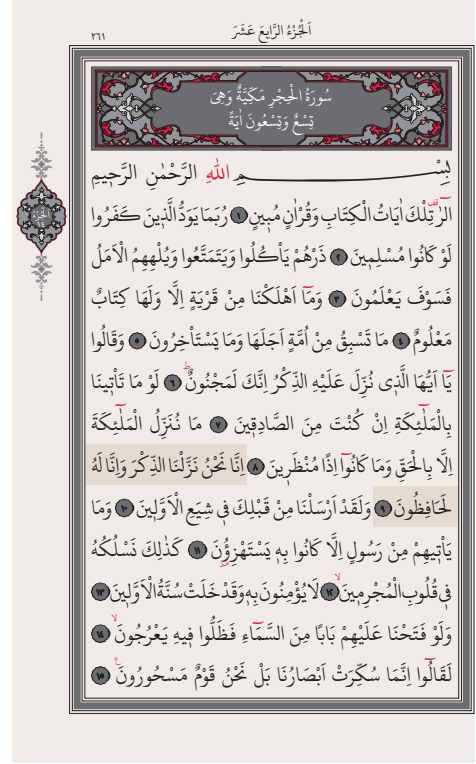 اَلْجُزْءُ الرَّابِعَ عَشَرَ
٢٦١
سُورَةُ الْحِجْرِ مَكِّيَّةٌ وَهِيَ
تِسْعٌ وَتِسْعُونَ اٰيَةً
بِسْمِ اللّٰهِ الرَّحْمٰنِ الرَّحِيمِ
الٓرٰ تِلْكَ اٰيَاتُ الْكِتَابِ وَقُرْاٰنٍ مُبِينٍ ١ رُبَمَا يَوَدُّ الَّذِينَ كَفَرُوا
لَوْ كَانُوا مُسْلِمِينَ ٢ ذَرْهُمْ يَأْكُلُوا وَيَتَمَتَّعُوا وَيُلْهِهِمُ الْاَمَلُ
فَسَوْفَ يَعْلَمُونَ ٣ وَمَٓا اَهْلَكْنَا مِنْ قَرْيَةٍ اِلَّا وَلَهَا كِتَابٌ
مَعْلُومٌ ٤ مَا تَسْبِقُ مِنْ اُمَّةٍ اَجَلَهَا وَمَا يَسْتَأْخِرُونَ ٥ وَقَالُوا
يَٓا اَيُّهَا الَّذِى نُزِّلَ عَلَيْهِ الذِّكْرُ اِنَّكَ لَمَجْنُونٌۜ ٦ لَوْ مَا تَأْتِينَا
بِالْمَلٰٓئِكَةِ اِنْ كُنْتَ مِنَ الصَّادِقِينَ ٧ مَا نُنَزِّلُ الْمَلٰٓئِكَةَ
اِلَّا بِالْحَقِّ وَمَا كَانُٓوا اِذًا مُنْظَرِينَ ٨ اِنَّا نَحْنُ نَزَّلْنَا الذِّكْرَ وَاِنَّا لَهُ
لَحَافِظُونَ ٩ وَلَقَدْ اَرْسَلْنَا مِنْ قَبْلِكَ فِى شِيَعِ الْاَوَّلِينَ ١٠ وَمَا
يَأْتِيهِمْ مِنْ رَسُولٍ اِلَّا كَانُوا بِهِ يَسْتَهْزِؤُنَ ١١ كَذٰلِكَ نَسْلُكُهُ
فِى قُلُوبِ الْمُجْرِمِينَۙ ١٢ لَا يُؤْمِنُونَ بِهِ وَقَدْ خَلَتْ سُنَّةُ الْاَوَّلِينَ ١٣
وَلَوْ فَتَحْنَا عَلَيْهِمْ بَابًا مِنَ السَّمَٓاءِ فَظَلُّوا فِيهِ يَعْرُجُونَۙ ١٤
لَقَالُٓوا اِنَّمَا سُكِّرَتْ اَبْصَارُنَا بَلْ نَحْنُ قَوْمٌ مَسْحُورُونَ۟ ١٥